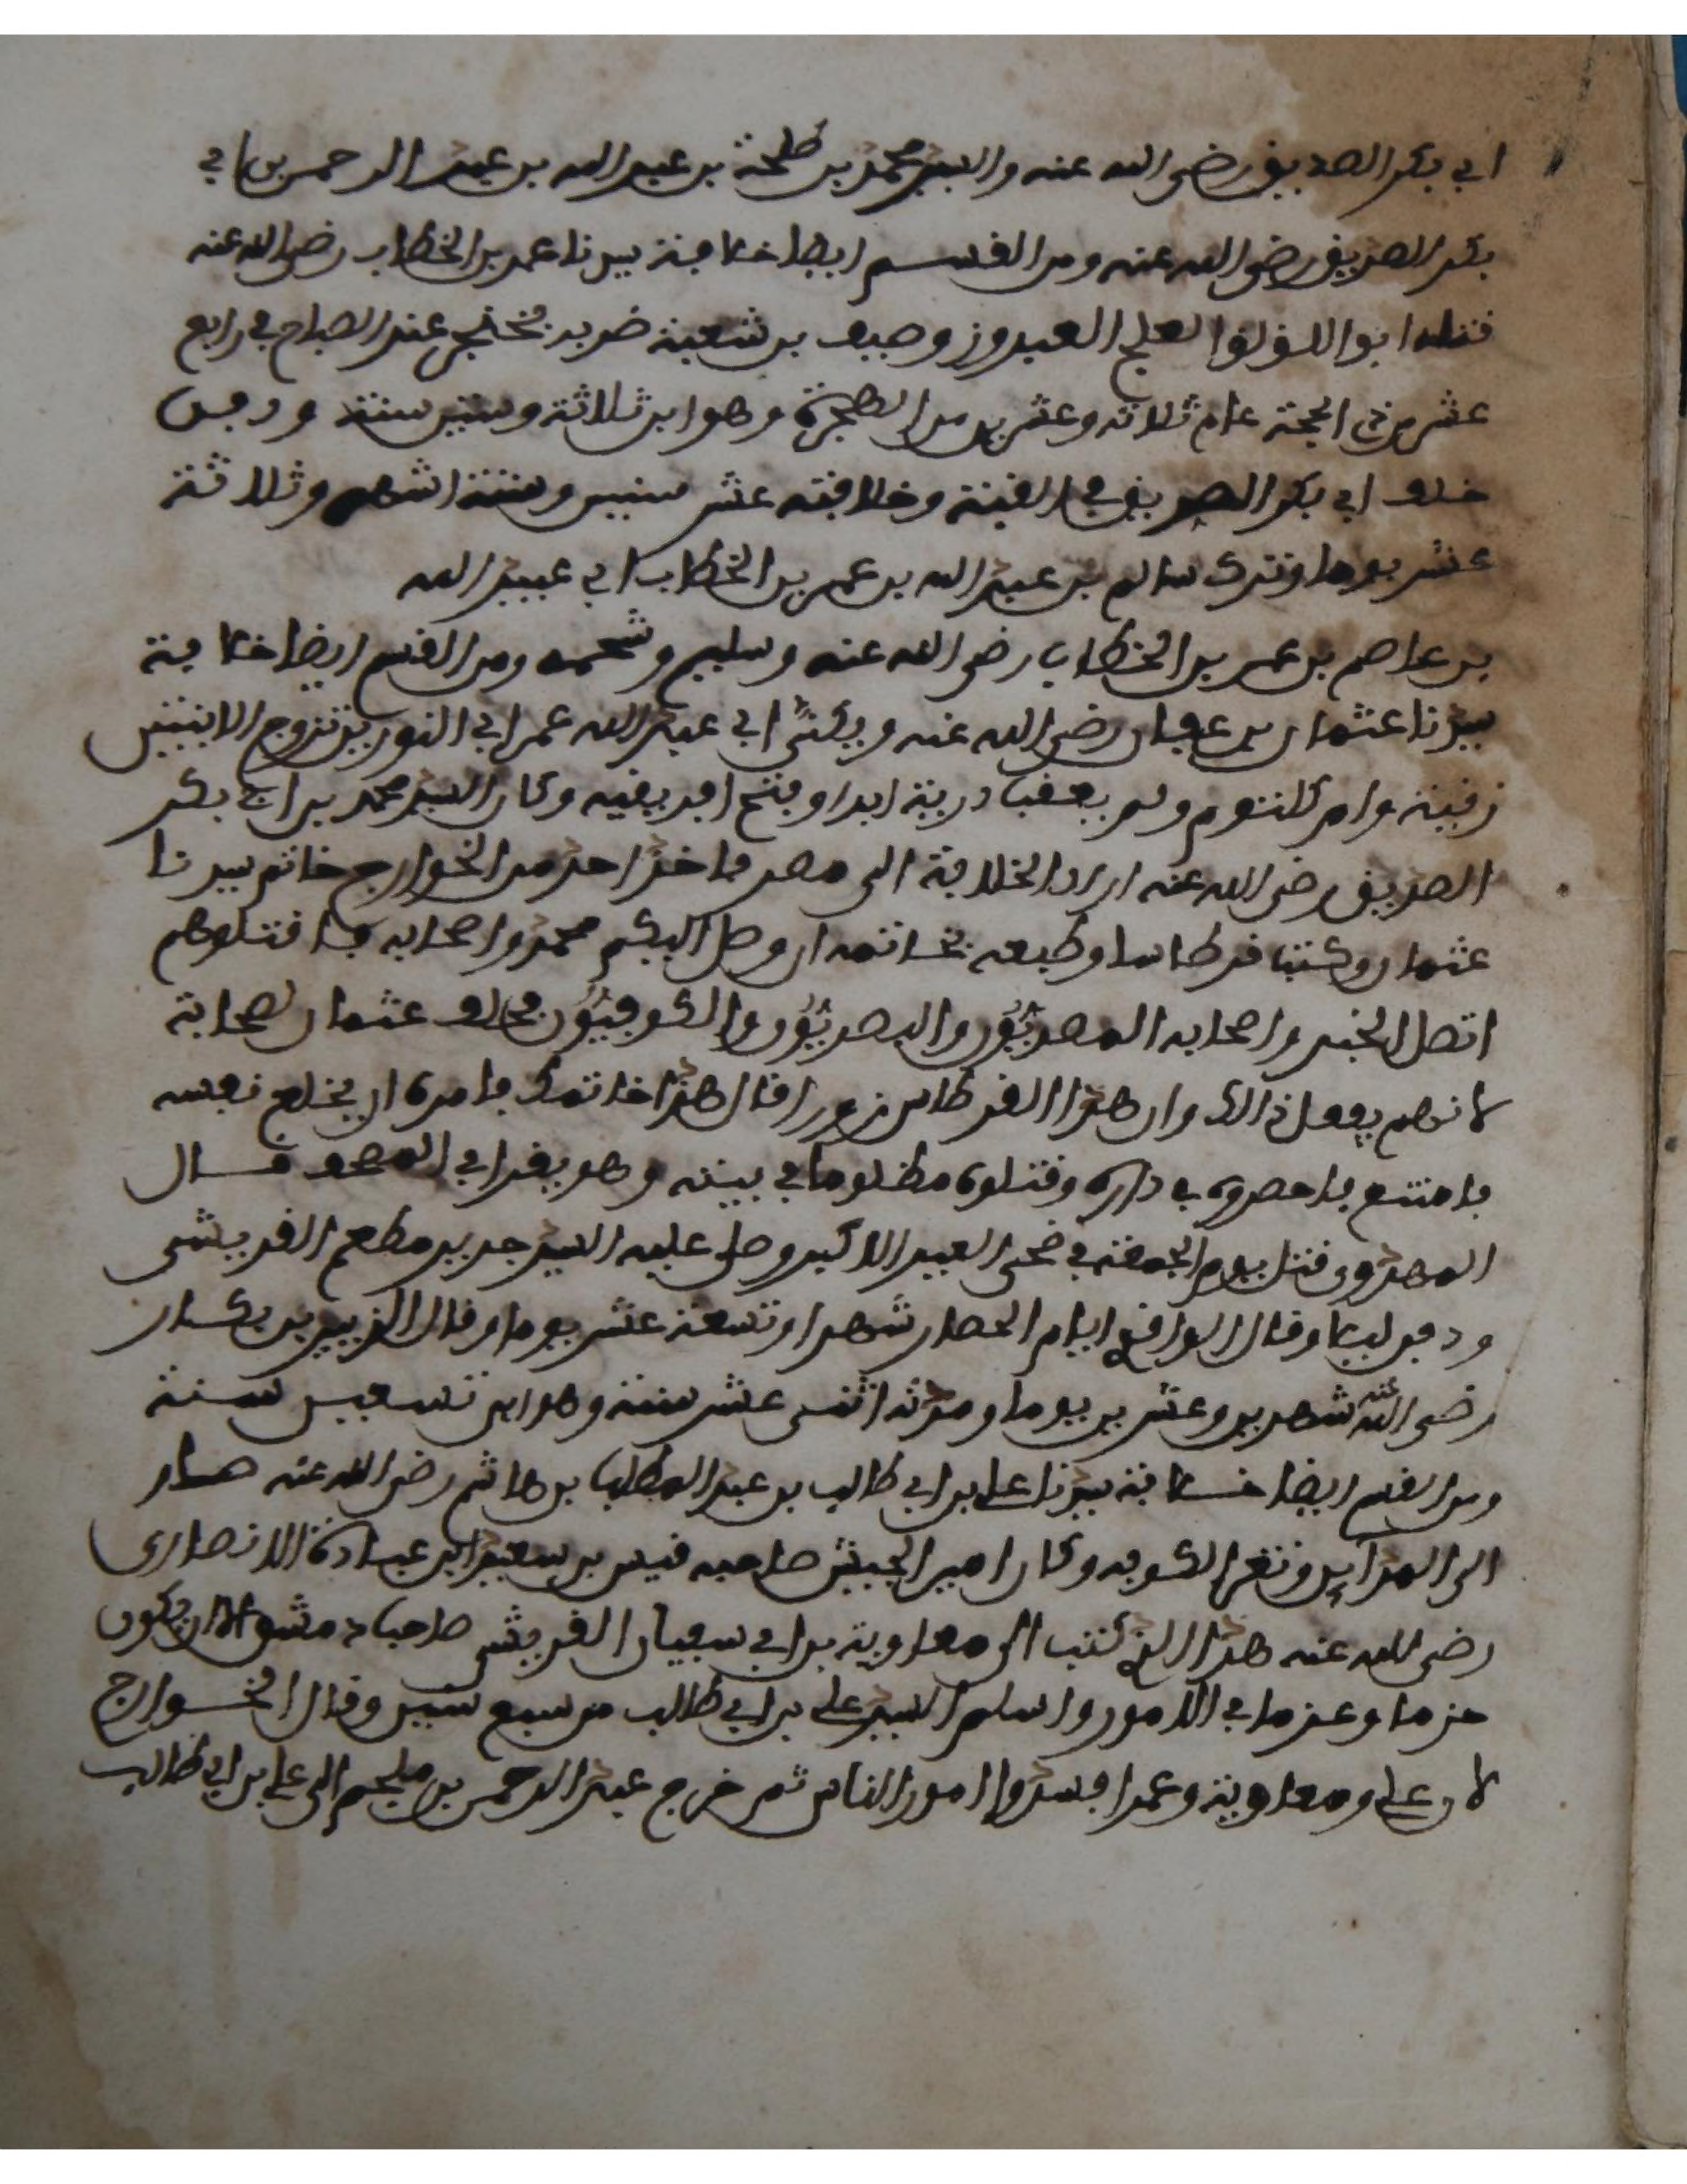 ابي بكر الصديق رضي الله عنه والسيد محمد بن طلحة بن عبد الله بن عبد الرحمن بن ابي
بكر الصديق رضي الله عنه ومن القسم ايضا خلافة سيدنا عمر بن الخطاب رضي الله عنه
قتله ابو اللؤلؤا لعلج الفيروز وصيف بن شعبة ضربه بخنجر عند الصباح في رابع
عشر من ذي الحجة عام ثلاثة وعشرين من الهجرة وهو ابن ثلاثة وستين سنة ودفن
خلف ابي بكر الصديق في القبة وخلافته عشر سنين وستة اشهر وثلاثة
عشر يوما وترك سالم بن عبد الله بن عمر بن الخطاب ابي عبيد الله
بن عاصم بن عمر بن الخطاب رضي الله عنه وسليم وشحمه ومن القسم ايضا خلافة
سيدنا عثمان بن عفان رضي الله عنه ويكنى ابي عبد الله عمر ابي النورين تزوج الابنتين
رقية وام كلثوم ولم يعقب ذرية ابدا وفتح افريقيه وكان السيد محمد بن ابي بكر
الصديق رضي الله عنه اراد الخلافة الى مصر فاخذ احد من الخوارج خاتم سيدنا
عثمان وكتب قرطاسا وطبعه بخاتمه ان وصل اليكم محمد واصحابه فاقتلوهم
اتصل الخبر واصحابه المصريّون والبصريّون والكوفيّون فحلف عثمان لصحابة
لانهم يفعل ذالك وان هذا القرطاس زورا قال هذا خاتمك فامره ان يخلع نفسه
فامتنع فاحصروه في داره وقتلوه مظلوما في بيته وهو يقرا في المصحف قال
المهدوي قتل يوم الجمعة في ضحى العيد الاكبر وصلى عليه السيد جدير مطعم القريشي
ودفن ليلا وقال الواقدي ايام الحصار شهرا وتسعة عشر يوما وقال الزبير بن بكار
رضي الله عنه شهرين وعشرين يوما ومدته اثنى عشر سنة وهو ابن تسعين سنة
ومن القسم ايضا خلافة سيدنا علي بن ابي طالب بن عبد المطلب بن هاشم رضي الله عنه سار
الى المداين وثغر الكوفه وكان امير الجيش صاحبه قيس بن سعيد ابن عبادة الانصاري
رضي الله عنه هذا الذي كتب الى معاوية بن ابي سفيان القريشي صاحب دمشق ان يكون
حزما وعزما في الامور واسلم السيد علي بن ابي طالب من سبع سنين وقال الخوارج
لان علي ومعاوية وعمرا افسدوا امور الناس ثم خرج عبد الرحمن بن ملجم الى علي بن ابي طالب